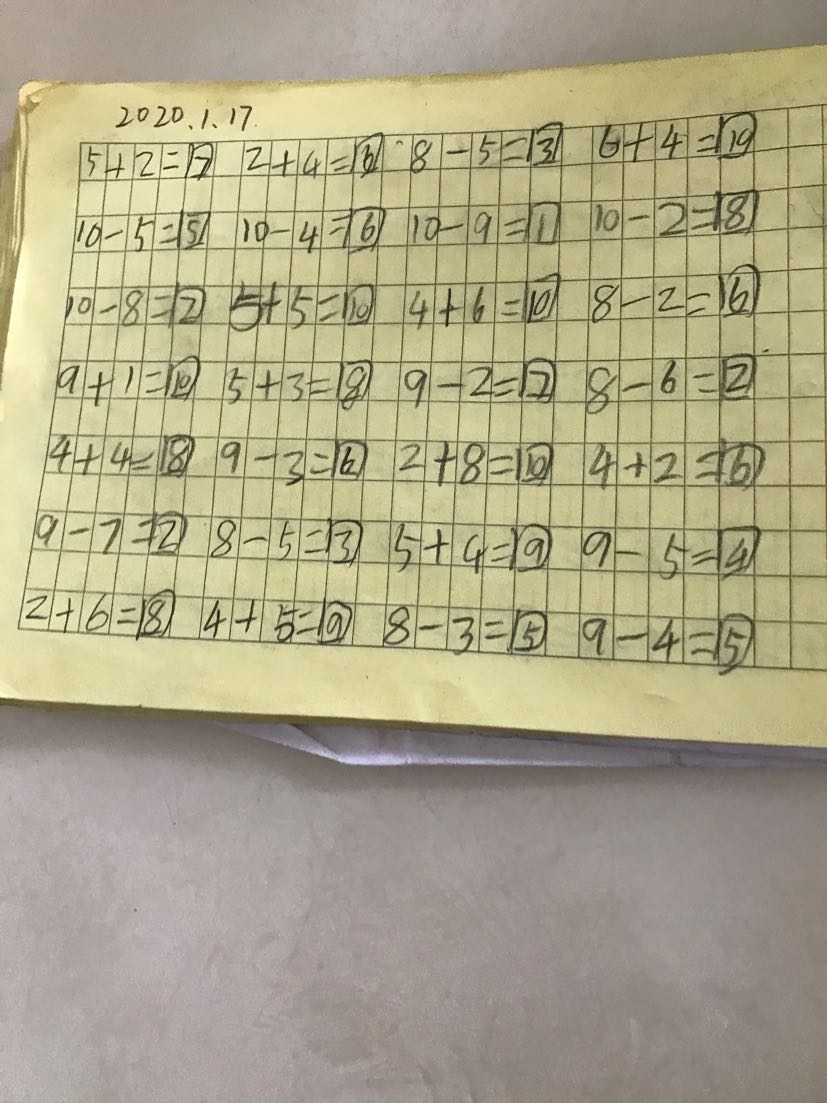 2020.1.17.
5+2=7 2+4=6 8-5=3 6+4=10
10-5=5 10-4=6 10-9=1 10-2=8
10-8=2 5+5=10 4+6=10 8-2=6
9+1=10 5+3=8 9-2=7 8-6=2
4+4=8 9-3=6 2+8=10 4+2=6
9-7=2 8-5=3 5+4=9 9-5=4
2+6=8 4+5=9 8-3=5 9-4=5